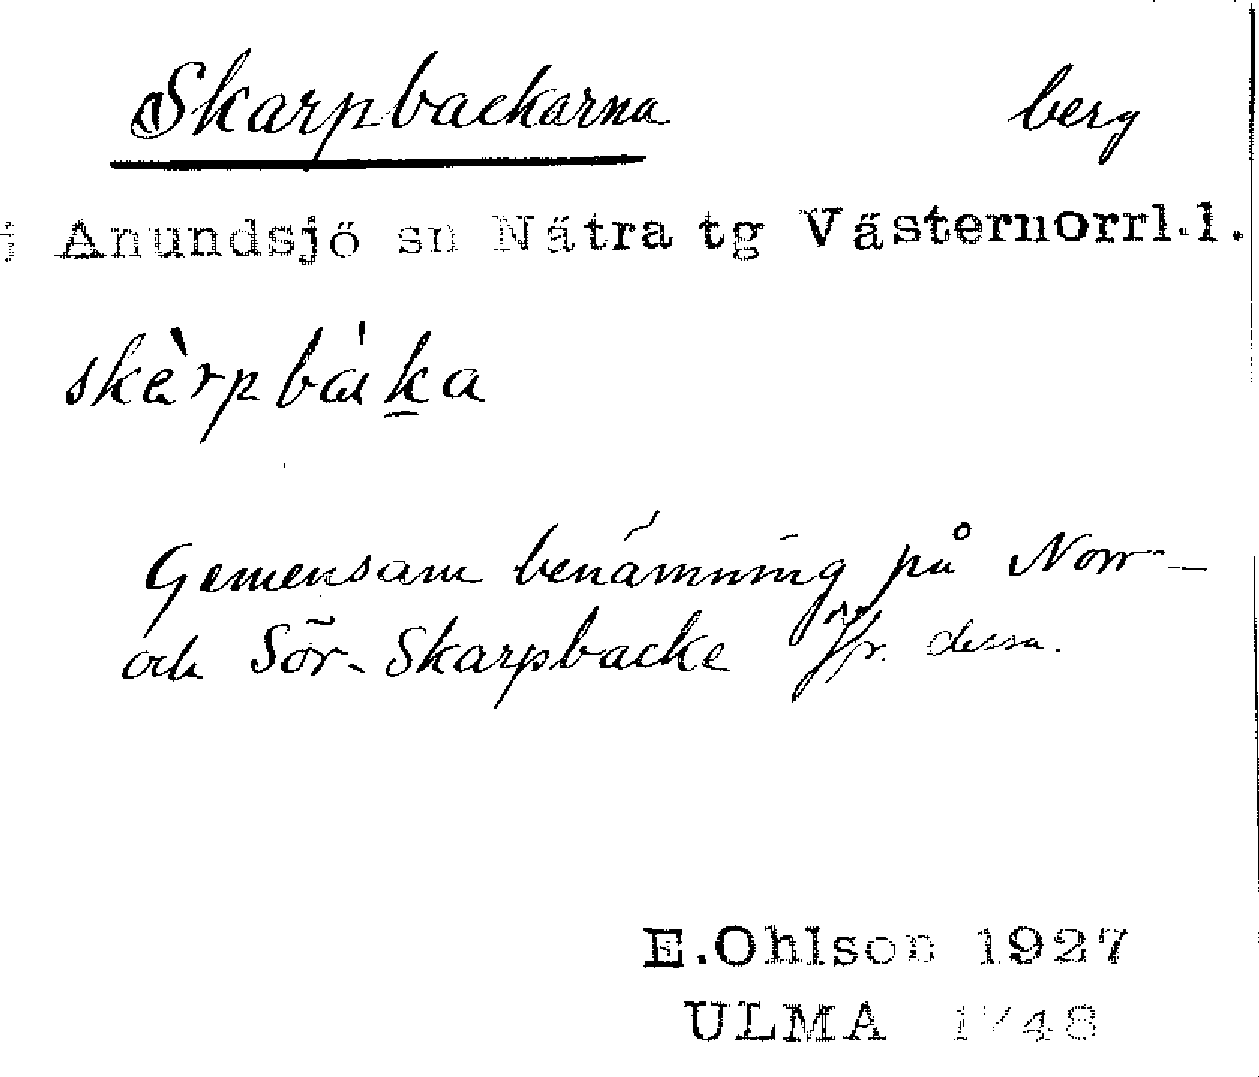 Skarpbackarna berg
Anundsjö sn Nätra tg Västernorrl.l.
skèrpbáka
Gemensam benämning på Norr-
och Sör-Skarpbacke Jfr. dessa.
E.Ohlson 1927
ULMA 1748